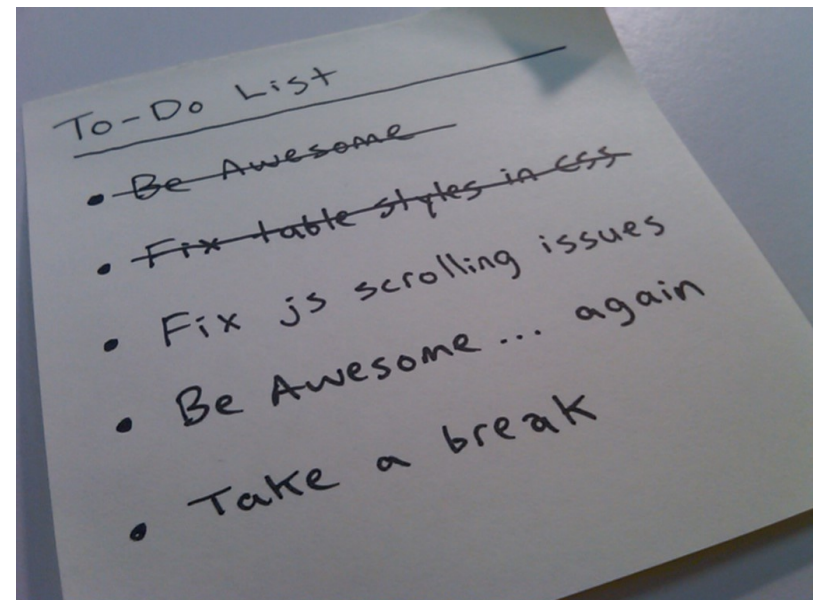 To-Do List
• Be Awesome
• Fix table styles in css
• Fix js scrolling issues
• Be Awesome... again
• Take a break